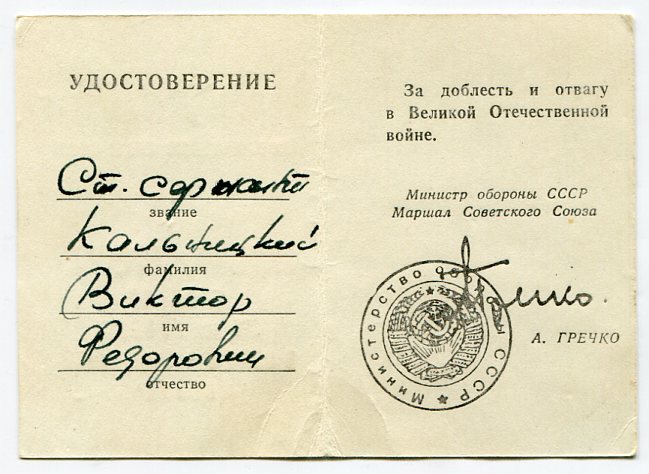 УДОСТОВЕРЕНИЕ
Ст. сержант
звание
Кальницкий
фамилия
Виктор
имя
Федорович
отчество
За доблесть и отвагу
в Великой Отечественной
войне.
Министр обороны СССР
Маршал Советского Союза
Министерство обороны СССР
А. ГРЕЧКО